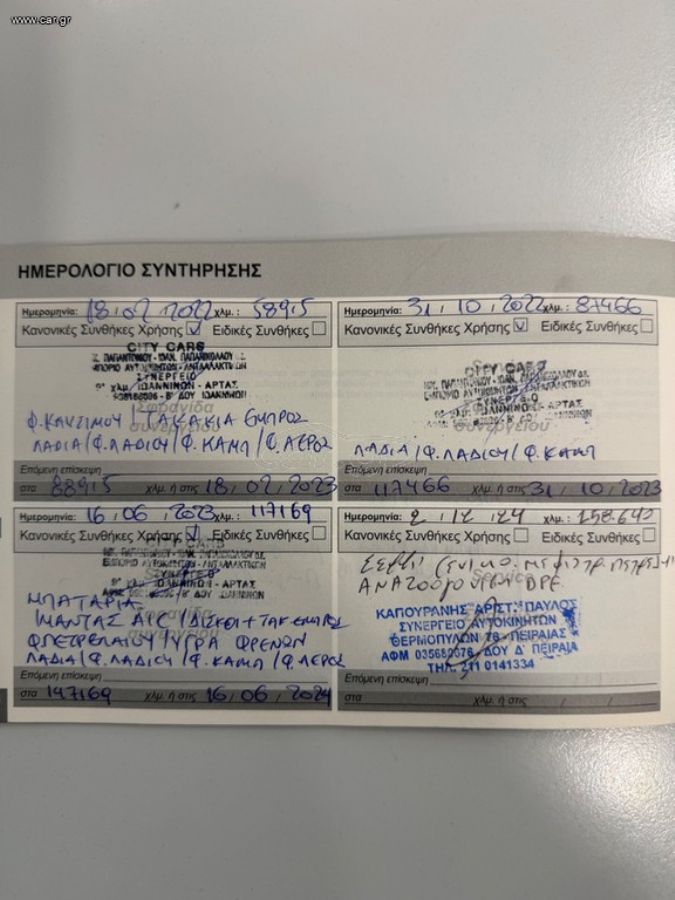 www.car.gr
ΗΜΕΡΟΛΟΓΙΟ ΣΥΝΤΗΡΗΣΗΣ
Ημερομηνία: 18, 02, 2022 χλμ.: 58915
Κανονικές Συνθήκες Χρήσης Ειδικές Συνθήκες
CITY CARS
ΣΥΝΕΡΓΕΙΟ
ΙΩΑΝΝΙΝΩΝ - ΑΡΤΑΣ
Φ. ΚΑΥΣΙΜΟΥ / ΤΑΚΑΚΙΑ ΕΜΠΡΟΣ
ΛΑΔΙΑ / Φ. ΛΑΔΙΟΥ / Φ. ΚΑΜΠ / Φ. ΑΕΡΟΣ
Επόμενη επίσκεψη
στα 88915 χλμ. ή στις 18, 02, 2023
Ημερομηνία: 31, 10, 2022 χλμ.: 87466
Κανονικές Συνθήκες Χρήσης Ειδικές Συνθήκες
CITY CARS
ΣΥΝΕΡΓΕΙΟ
ΙΩΑΝΝΙΝΩΝ - ΑΡΤΑΣ
ΛΑΔΙΑ / Φ. ΛΑΔΙΟΥ / Φ. ΚΑΜΠ
Επόμενη επίσκεψη
στα 117466 χλμ. ή στις 31, 10, 2023
Ημερομηνία: 16, 06, 2023 χλμ.: 117169
Κανονικές Συνθήκες Χρήσης Ειδικές Συνθήκες
CITY CARS
ΙΩΑΝΝΙΝΩΝ - ΑΡΤΑΣ
ΜΠΑΤΑΡΙΑ
ΙΜΑΝΤΑΣ A/C / ΔΙΣΚΟΙ + ΤΑΚ ΕΜΠΡΟΣ
Φ ΠΕΤΡΕΛΑΙΟΥ / ΥΓΡΑ ΦΡΕΝΩΝ
ΛΑΔΙΑ / Φ. ΛΑΔΙΟΥ / Φ. ΚΑΜΠ / Φ. ΑΕΡΟΣ
Επόμενη επίσκεψη
στα 147169 χλμ. ή στις 16, 06, 2024
Ημερομηνία: 2, 12, 24 χλμ.: 158.640
Κανονικές Συνθήκες Χρήσης Ειδικές Συνθήκες
ΚΑΠΟΥΡΑΝΗΣ ΑΡΙΣΤ. ΠΑΥΛΟΣ
ΣΥΝΕΡΓΕΙΟ ΑΥΤΟΚΙΝΗΤΩΝ
ΘΕΡΜΟΠΥΛΩΝ 76 - ΠΕΙΡΑΙΑΣ
ΑΦΜ 035682076 - ΔΟΥ Δ' ΠΕΙΡΑΙΑ
ΤΗΛ. 211 0141334
Επόμενη επίσκεψη
στα χλμ. ή στις / /